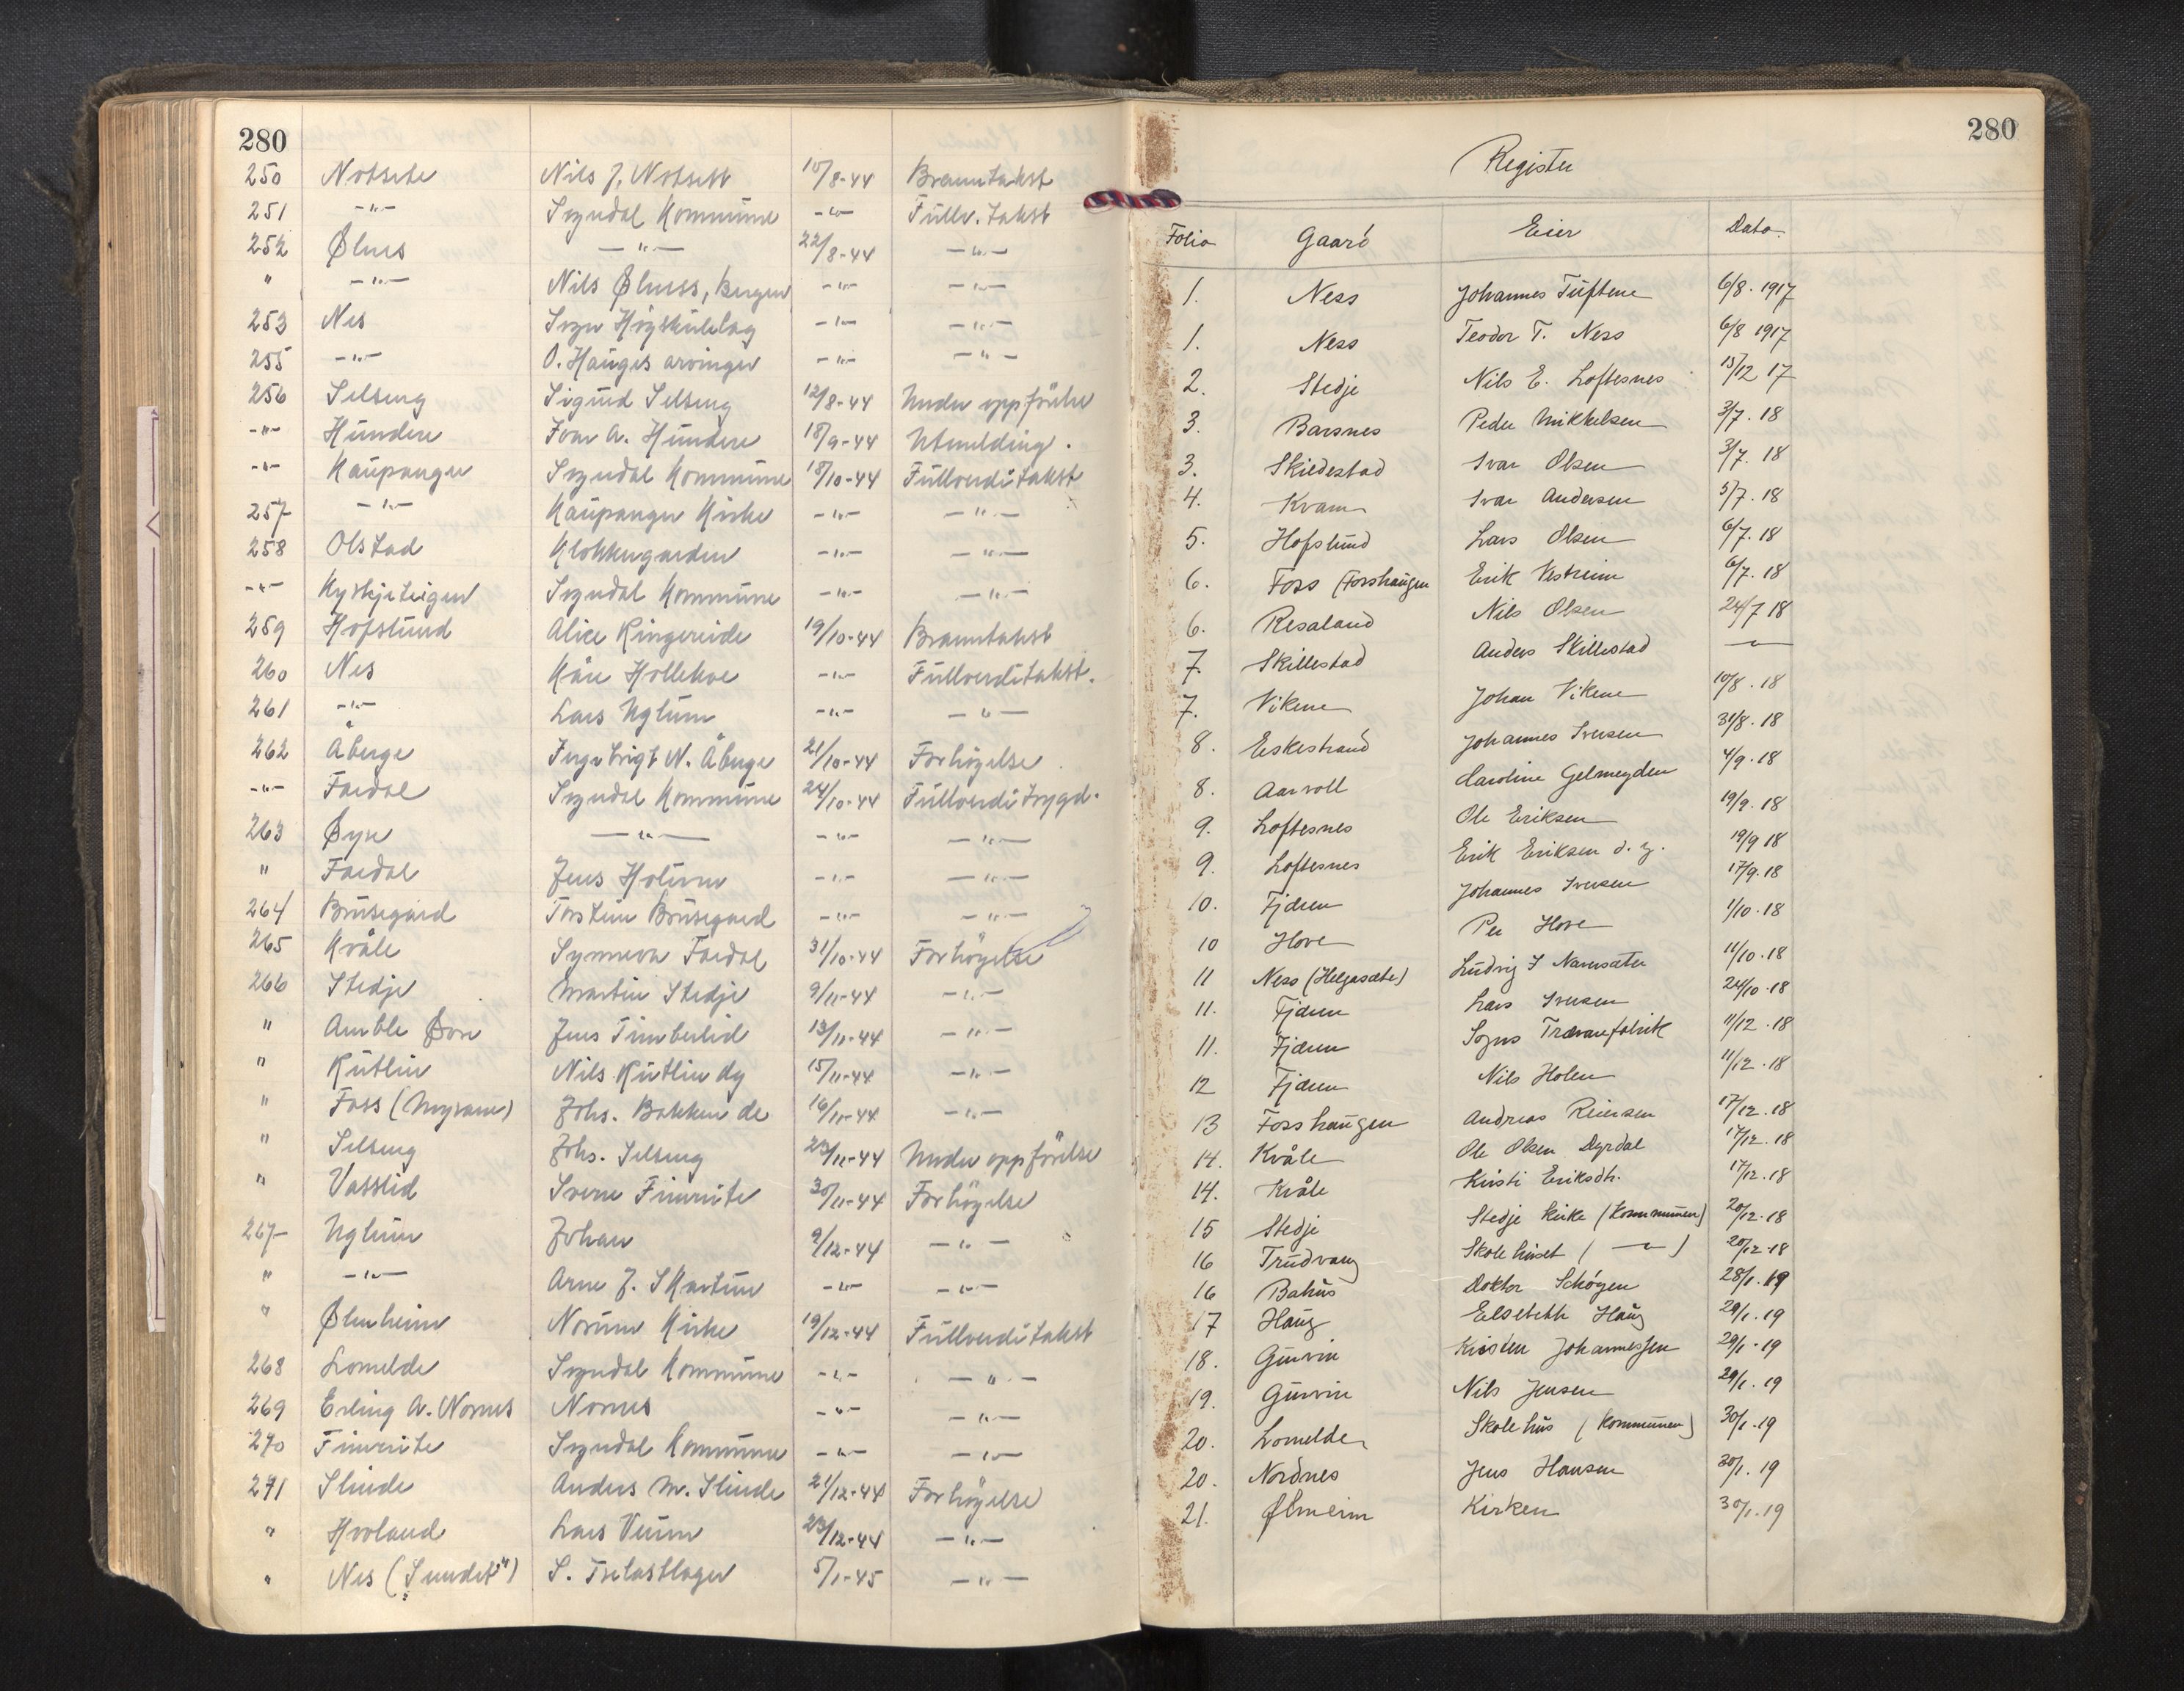 280
250 Notsete Nils J. Notsett 15/8-44 Branntakst
251 -"- Sogndal Kommune -"- Fullv. takst
252 Ølnes -"- 22/8-44 -"-
" -"- Nils Ølness, Bergen -"- -"-
253 Nes Sogn Høgskulelag -"- -"-
255 -"- O. Hauges arvinger -"- -"-
256 Selseng Sigurd Selseng 12/8-44 Under oppförelse
-"- Hundere Ivar A. Hundere 18/9-44 Utmelding.
-"- Kaupanger Sogndal Kommune 18/10-44 Fullverditakst
257 -"- Kaupanger Kirke -"- -"-
258 Olstad Klokkergarden -"- -"-
-"- Kyrkjeteigen Sogndal Kommune -"- -"-
259 Hofslund Alice Ringereide 19/10-44 Branntakst
260 Nes Kåre Hollekve -"- Fullverditakst.
261 -"- Lars Uglum -"- -"-
262 Åberge Ingebrigt N. Åberge 21/10-44 Forhögelse
-"- Fardal Sogndal Kommune 24/10-44 Fullverditrygd.
263 Øyre -"- -"- -"-
" Fardal Jens Holum -"- -"-
264 Brusegard Torstein Brusegard -"- -"-
265 Kvåle Synneva Fardal 31/10-44 Forhøgelse
266 Stedje Martin Stedje 9/11-44 -"-
" Amble Øvre Jens Timberlid 13/11-44 -"-
" Rutlin Nils Rutlin dy 15/11-44 -"-
" Foss (Myrane) Johs. Bakken de 16/11-44 -"-
" Selseng Johs. Selseng 23/11-44 Under oppförelse
" Vatslid Sverre Fimreite 30/11-44 Forhögelse
267 Uglum Johan 9/12-44 -"-
" -"- Arne J. Skartun -"- -"-
" Ølmheim Norum Kirke 19/12-44 Fullverditakst
268 Lomelde Sogndal Kommune -"- -"-
269 Erling A. Nornes Nornes -"- -"-
270 Fimreite Sogndal Kommune -"- -"-
271 Slinde Anders M. Slinde 21/12-44 Forhögelse
" Hovland Lars Vium 23/12-44 -"-
" Nes ("Sundet") S. Trelastlager 5/1-45 -"-
280
Register
Folio Gaard Eier Dato.
1. Ness Johannes Tuftene 6/8. 1917
1. Ness Teodor T. Ness 6/8 1917
2. Stedje Nils E. Loftesnes 15/12 17
3. Barsnes Peder Mikkelsen 3/7. 18
3. Skildestad Ivar Olsen 3/7. 18
4. Kvam Ivar Andersen 5/7. 18
5. Hofslund Lars Olsen 6/7. 18
6. Foss (Fosshaugen Erik Vestreim 6/7. 18
6. Resaland Nils Olsen 24/7 18
7. Skillestad Anders Skillestad -"-
7. Vikene Johan Vikene 10/8. 18
8. Eskestrand Johannes Iversen 31/8. 18
8. Aarvoll Caroline Gelmeyden 4/9. 18
9. Loftesnes Ole Eriksen 19/9. 18
9. Loftesnes Erik Eriksen d. y. 19/9 18
10. Fjæren Johannes Iversen 17/9. 18
10 Hove Per Hove 1/10. 18
11 Ness (Helgasæte) Ludvig I Navarsæter 11/10. 18
11. Fjæren Lars Iversen 24/10. 18
11. Fjæren Sogns Trævarefabrik 11/12. 18
12 Fjæren Nils Holen 11/12. 18
13 Fosshaugen Andreas Reiersen 17/12. 18
14. Kvåle Ole Olsen Dyrdal 17/12. 18
14. Kvåle Kristi Eriksdtr. 17/12. 18
15 Stedje Stedje Kirke (Kommunen) 20/12. 18
16 Trudvang Skolehuset ( -"- ) 20/12-18
16 Bahus Doktor Schøyen 28/1. 19
17 Haug Elsebeth Haug 29/1. 19
18. Gurvin Kristen Johannessen 29/1. 19
19. Gurvin Nils Jensen 29/1. 19
20. Lomelde Skolehus (Kommunen) 30/1. 19
20. Nordnes Jens Hansen 30/1. 19
21. Ølmeim Kirken 30/1. 19